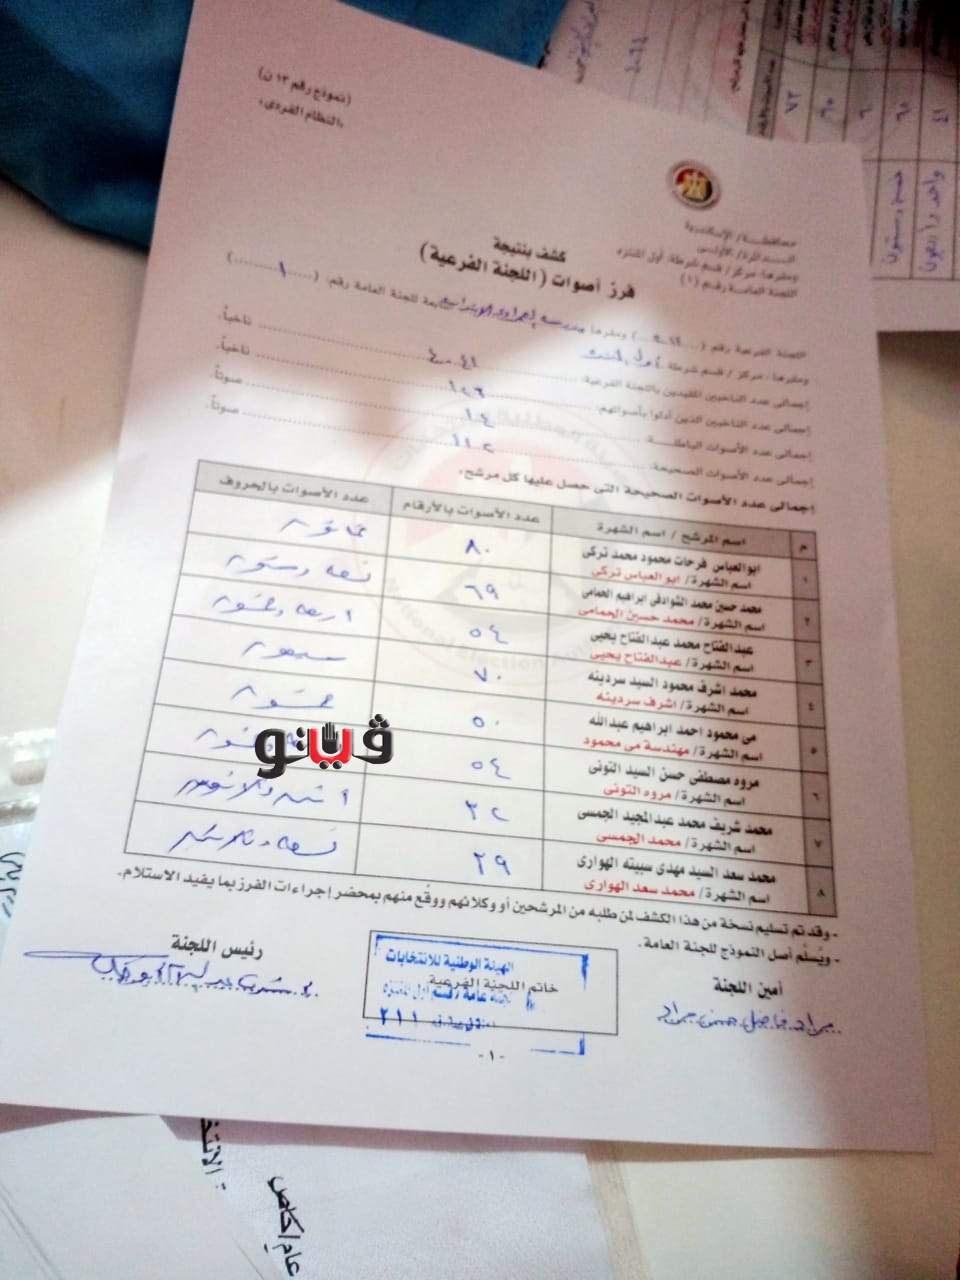 (نموذج رقم ١٣ ن)
«النظام الفردى»
محافظة/ الإسكندرية
الدائرة/ الأولى
ومقرها: مركز/ قسم شرطة: أول المنتزه
اللجنة العامة رقم (١)
كشف بنتيجة
فرز أصوات (اللجنة الفرعية)
اللجنة الفرعية رقم ومقرها مدرسة تابعة للجنة العامة رقم: (....١....)
ومقرها: مركز / قسم شرطة أول المنتزه
إجمالى عدد الناخبين المقيدين باللجنة الفرعية: ٤٠٤١ ناخباً.
إجمالى عدد الناخبين الذين أدلوا بأصواتهم: ١٢٦ ناخباً.
إجمالى عدد الأصوات الباطلة: ١٤ صوتاً.
إجمالى عدد الأصوات الصحيحة: ١١٢ صوتاً.
إجمالى عدد الأصوات الصحيحة التى حصل عليها كل مرشح.
م اسم المرشح / اسم الشهرة عدد الأصوات بالأرقام عدد الأصوات بالحروف
١ ابو العباس فرحات محمود محمد تركى ٨٠ ثمانون
اسم الشهرة/ ابو العباس تركى
٢ محمد حسين محمد الشوادفى ابراهيم الحمامى ٦٩ تسعة وستون
اسم الشهرة/ محمد حسين الحمامى
٣ عبدالفتاح محمد عبدالفتاح يحيى ٥٤ اربعة وخمسون
اسم الشهرة/ عبدالفتاح يحيى
٤ محمد اشرف محمود السيد سردينه ٧٠ سبعون
اسم الشهرة/ اشرف سردينه
٥ مى محمود احمد ابراهيم عبدالله ٥٠ خمسون
اسم الشهرة/ مهندسة مى محمود
٦ مروه مصطفى حسن السيد التونى ٥٤ وخمسون
اسم الشهرة/ مروه التونى
٧ محمد شريف محمد عبدالمجيد الجمسى ٣٢ اثنين وثلاثون
اسم الشهرة/ محمد الجمسى
٨ محمد سعد السيد مهدى سبيته الهوارى ٢٩ تسعة وعشرون
اسم الشهرة/ محمد سعد الهوارى
ڤيتو
- وقد تم تسليم نسخة من هذا الكشف لمن طلبه من المرشحين أو وكلائهم ووقع منهم بمحضر إجراءات الفرز بما يفيد الاستلام.
- ويُسلّم أصل النموذج للجنة العامة.
أمين اللجنة
رئيس اللجنة
الهيئة الوطنية للانتخابات
خاتم اللجنة الفرعية
لجنة عامة/ قسم أول المنتزه
٢١١
- ١ -